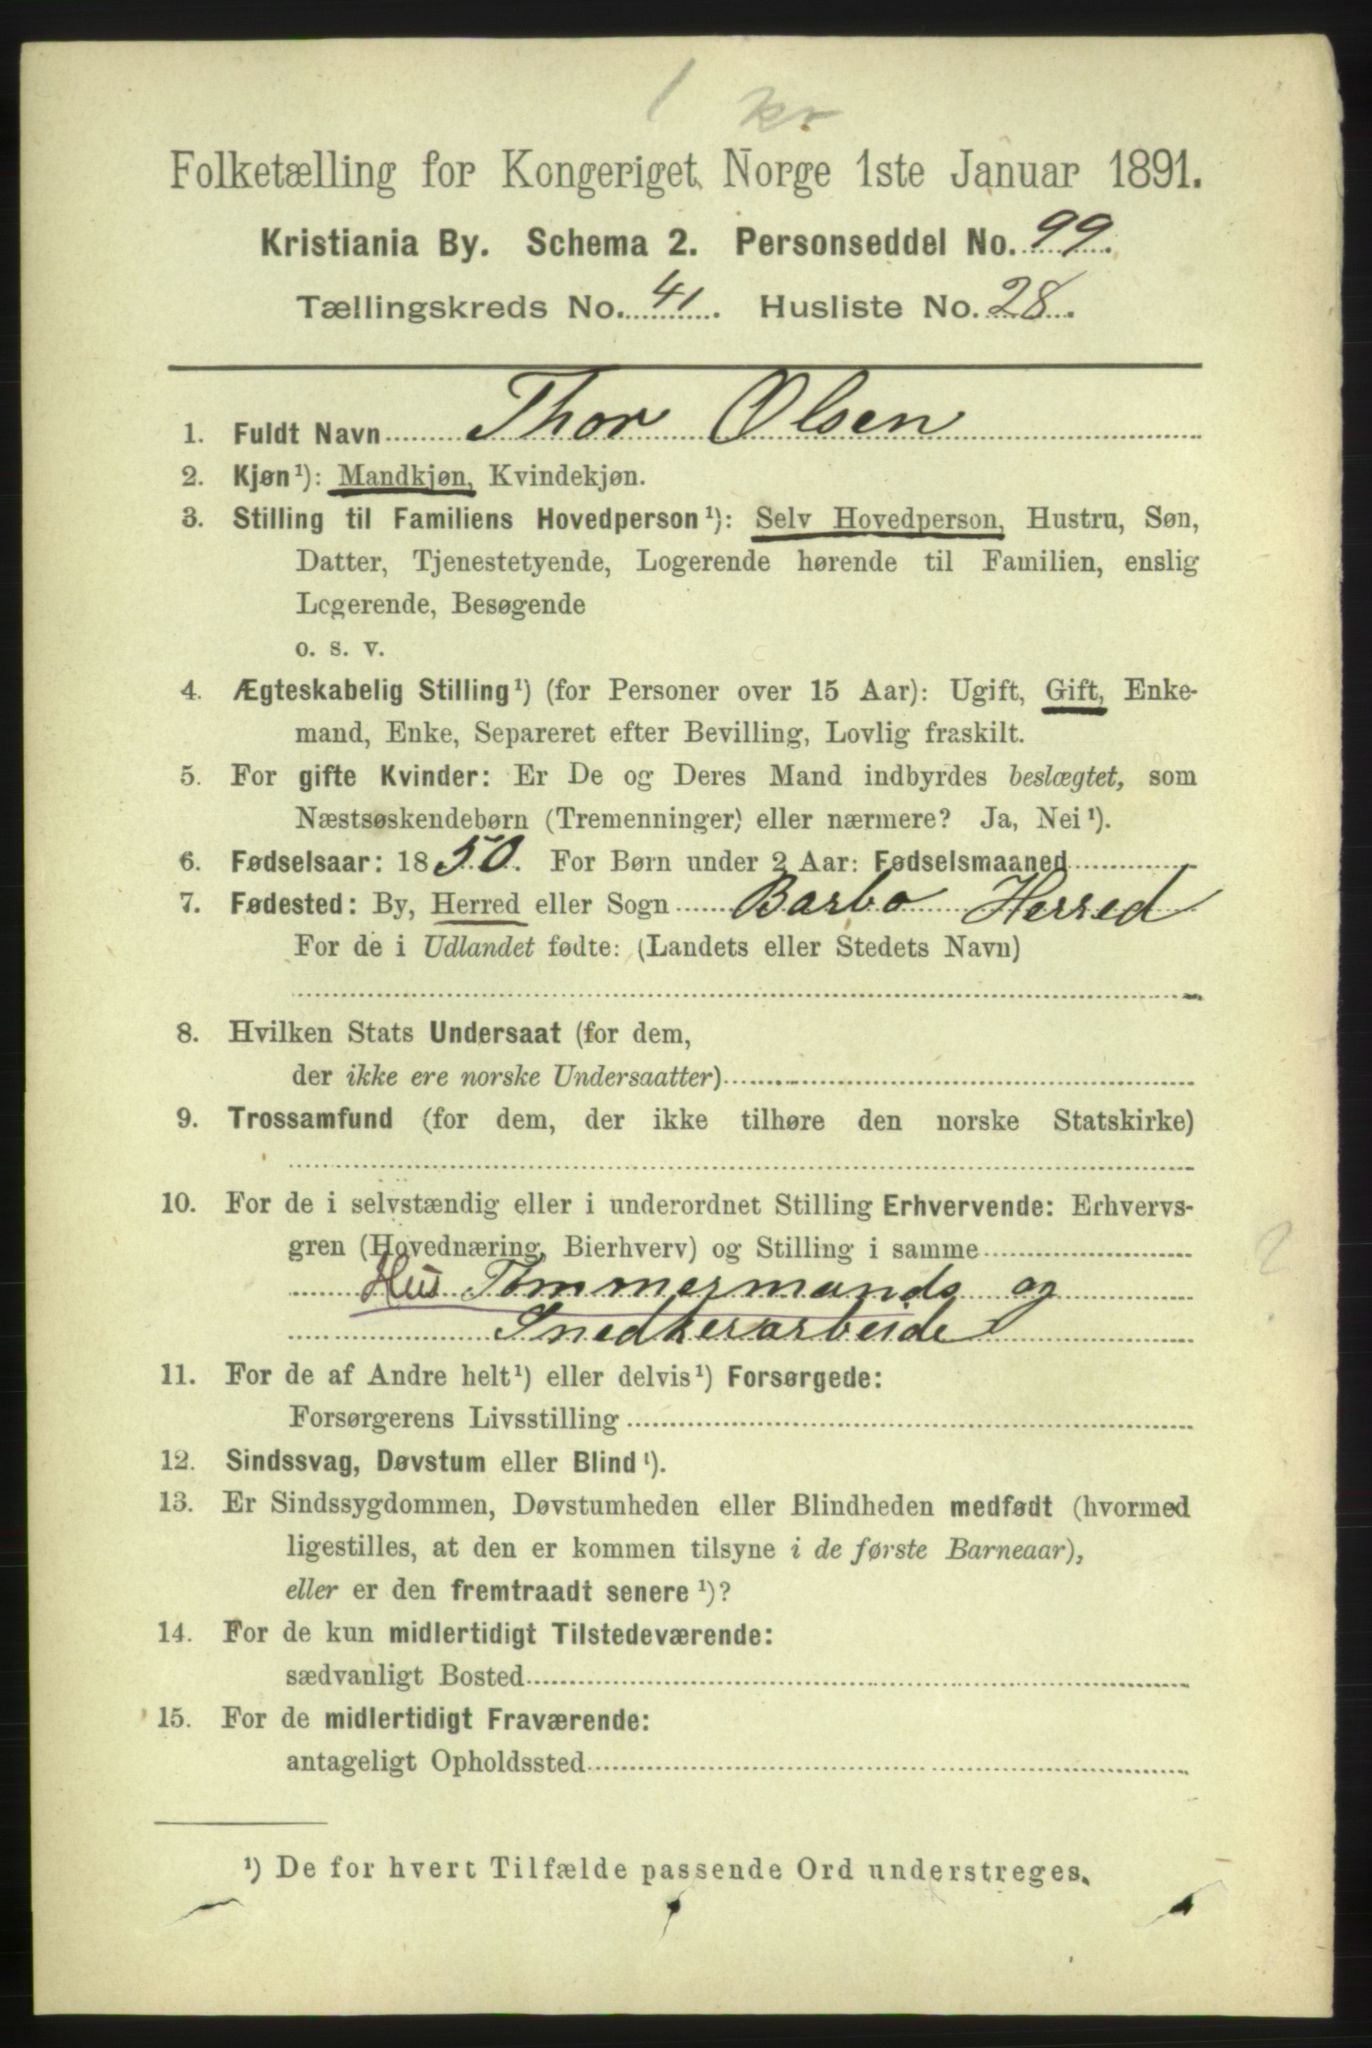 1 kr
Folketælling for Kongeriget Norge 1ste Januar 1891.
Kristiania By. Schema 2. Personseddel No. 99.
Tællingskreds No. 41. Husliste No. 28.
1. Fuldt Navn Thor Olsen
2. Kjøn¹): Mandkjøn, Kvindekjøn.
3. Stilling til Familiens Hovedperson¹): Selv Hovedperson, Hustru, Søn,
Datter, Tjenestetyende, Logerende hørende til Familien, enslig
Logerende, Besøgende
o. s. v.
4. Ægteskabelig Stilling¹) (for Personer over 15 Aar): Ugift, Gift, Enke-
mand, Enke, Separeret efter Bevilling, Lovlig fraskilt.
5. For gifte Kvinder: Er De og Deres Mand indbyrdes beslægtet, som
Næstsøskendebørn (Tremenninger) eller nærmere? Ja, Nei¹).
6. Fødselsaar: 1850. For Børn under 2 Aar: Fødselsmaaned
7. Fødested: By, Herred eller Sogn Barbo Herred
For de i Udlandet fødte: (Landets eller Stedets Navn)
8. Hvilken Stats Undersaat (for dem,
der ikke ere norske Undersaatter)
9. Trossamfund (for dem, der ikke tilhøre den norske Statskirke)
10. For de i selvstændig eller i underordnet Stilling Erhvervende: Erhvervs-
gren (Hovednæring, Bierhverv) og Stilling i samme
Hus Tømmermands og
Snedkerarbeide
11. For de af Andre helt¹) eller delvis¹) Forsørgede:
Forsørgerens Livsstilling
12. Sindssvag, Døvstum eller Blind¹).
13. Er Sindssygdommen, Døvstumheden eller Blindheden medfødt (hvormed
ligestilles, at den er kommen tilsyne i de første Barneaar),
eller er den fremtraadt senere¹)?
14. For de kun midlertidigt Tilstedeværende:
sædvanligt Bosted
15. For de midlertidigt Fraværende:
antageligt Opholdssted
¹) De for hvert Tilfælde passende Ord understreges.
2